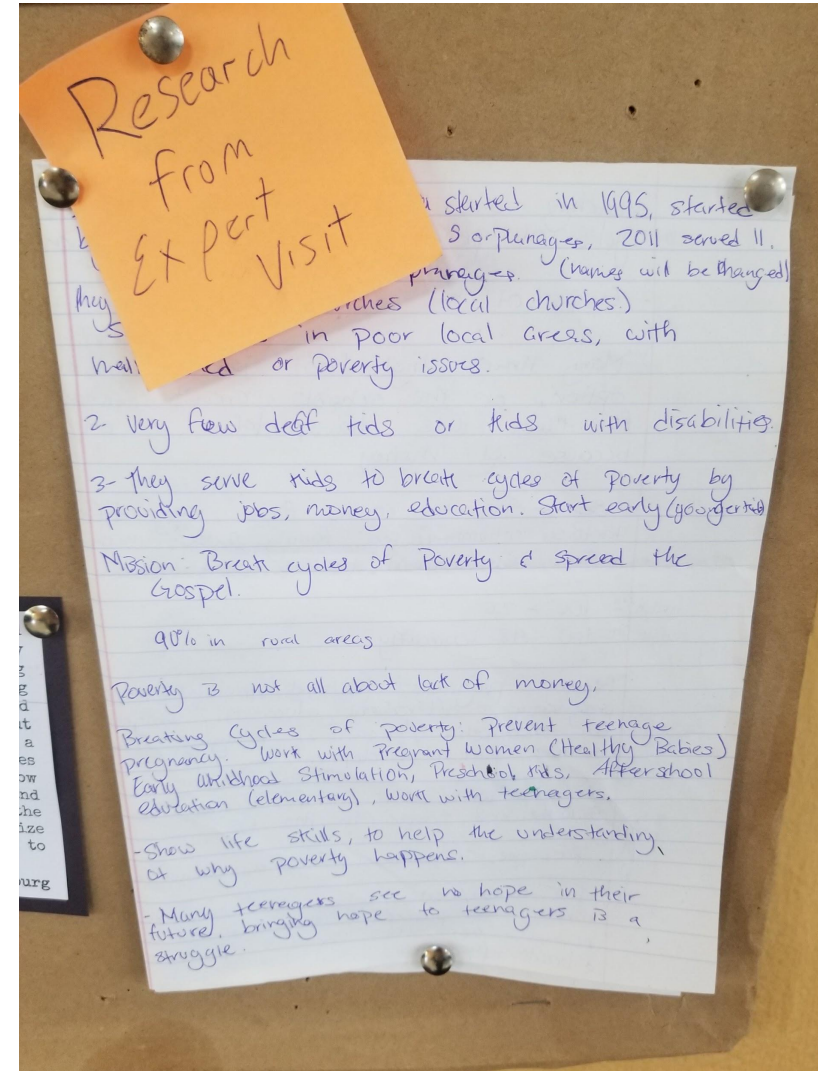 Research
from
Expert
Visit
started in 1995, started
S orphanages, 2011 served 11.
(names will be changed)
they (local churches)
in poor local areas, with
or poverty issues.
2- Very few deaf kids or kids with disabilities.
3- They serve kids to break cycles of poverty by
providing jobs, money, education. Start early (younger kids)
Mission: Break cycles of Poverty & spread the
Gospel.
90% in rural areas
Poverty is not all about lack of money.
Breaking Cycles of poverty: Prevent teenage
pregnancy. Work with Pregnant women (Healthy Babies)
Early childhood Stimulation, Preschool kids, Afterschool
education (elementary), work with teenagers.
-Show life skills, to help the understanding
of why poverty happens.
- Many teenagers see no hope in their
future, bringing hope to teenagers is a
struggle.
a
es
ow
nd
he
ize
to
urg